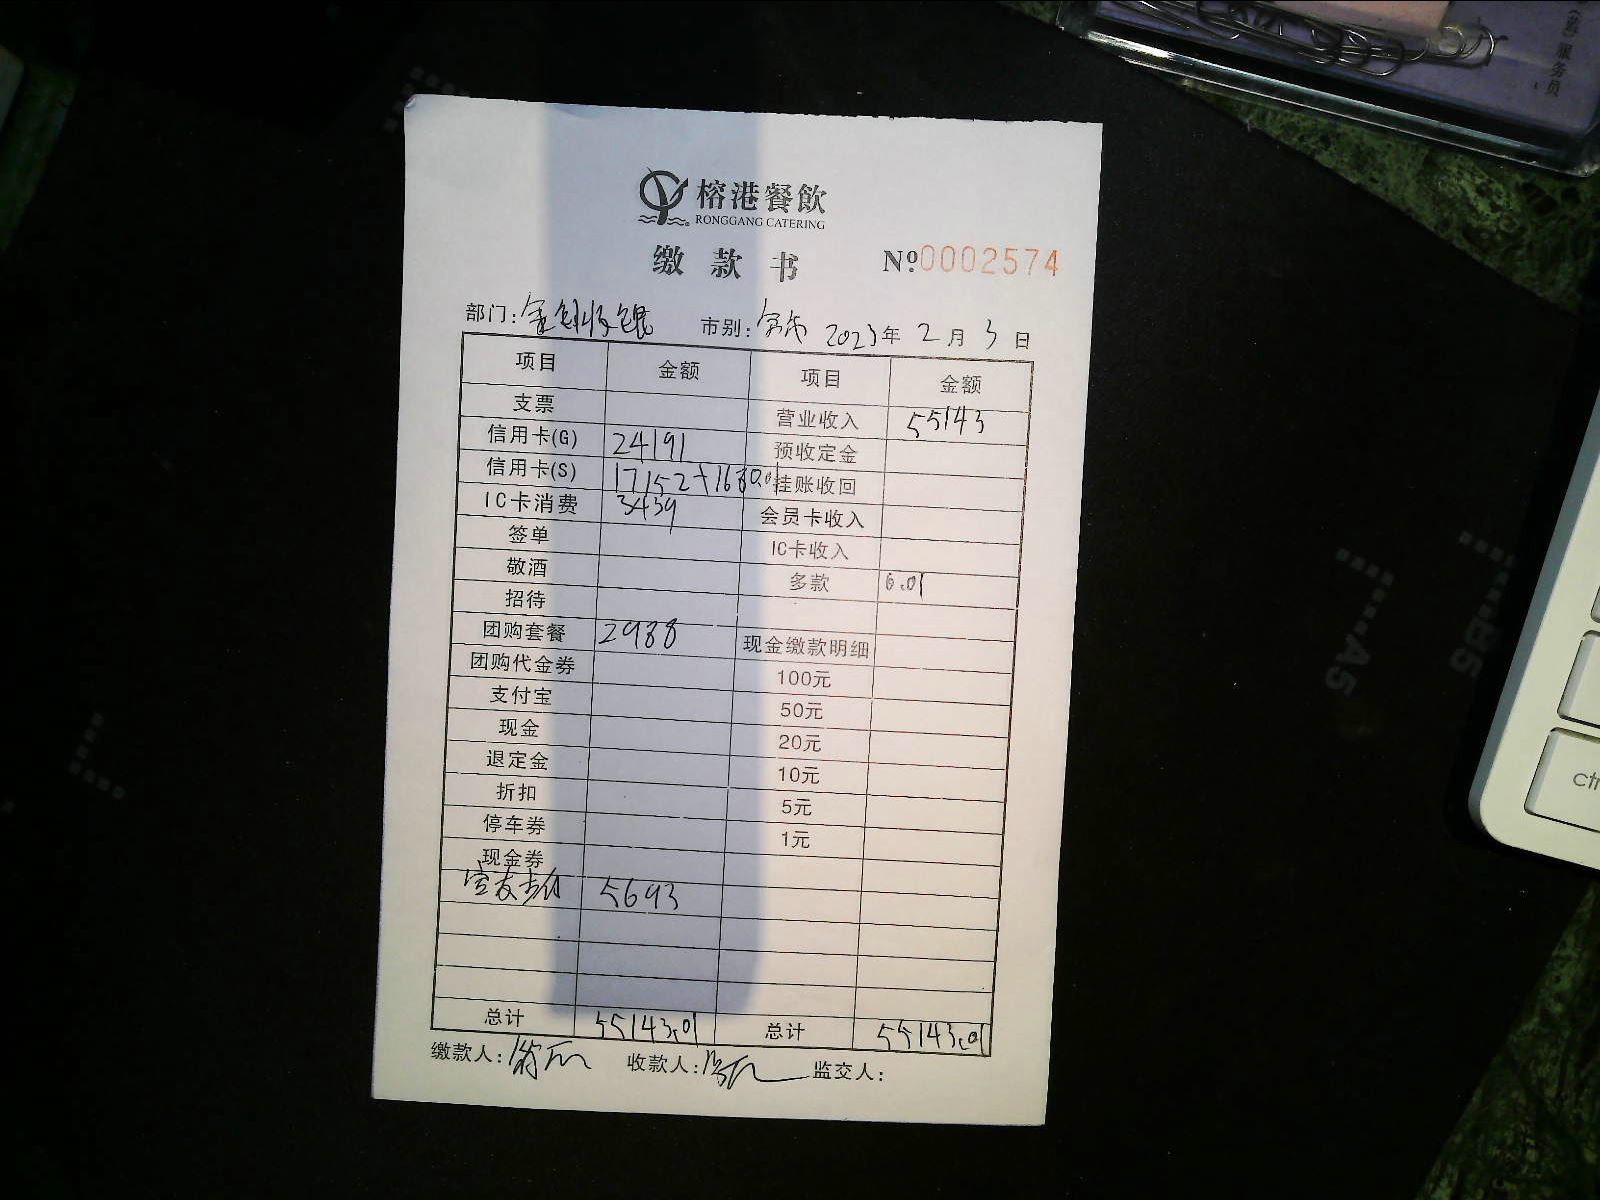 榕港餐飲
RONGGANG CATERING
缴款书
Nº0002574
部门：金创收银 市别： 2023年2月3日
项目 金额 项目 金额
支票 营业收入 55143
信用卡(G) 24191 预收定金
信用卡(S) 17152+1680.01 挂账收回
IC卡消费 3439 会员卡收入
签单 IC卡收入
敬酒 多款 0.01
招待
团购套餐 2988 现金缴款明细
团购代金券 100元
支付宝 50元
现金 20元
退定金 10元
折扣 5元
停车券 1元
现金券
5693
总计 55143.01 总计 55143.01
缴款人： 收款人： 监交人：
服务员
A5
B5
ctr